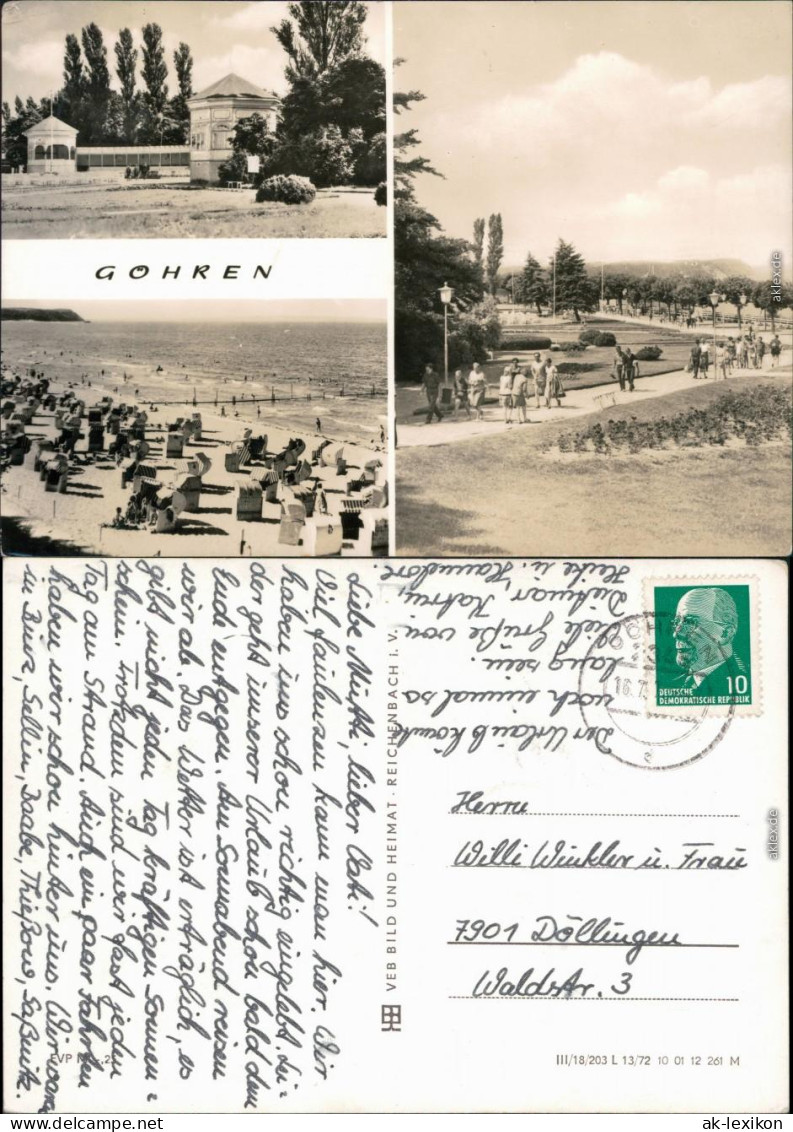 GÖHREN
aklex.de
Liebe Mutti, lieber Vati!
Viel faulenzen kann man hier. Wir
haben uns schon richtig eingelebt. Lei=
der geht unserer Urlaub schon bald dem
Ende entgegen. Am Sonnabend reisen
wir ab. Das Wetter ist erträglich, es
gibt nicht jeden Tag kräftigen Sonnen=
schein. Trotzdem sind wir fast jeden
Tag am Strand. Auch ein paar Fahrten
haben wir schon hinter uns. Wir waren
in Binz, Sellin, Baabe, Thießow, Saßnitz.
Der Urlaub könnte
noch einmal so
lang sein.
Viele Grüße von
Dietmar, Kathrin,
Heike u. Hannelore.
VEB BILD UND HEIMAT · REICHENBACH I. V.
10
DEUTSCHE
DEMOKRATISCHE REPUBLIK
Herrn
Willi Winkler u. Frau
7901 Döllingen
Waldstr. 3
aklex.de
III/18/203 L 13/72 10 01 12 261 M
ak-lexikon